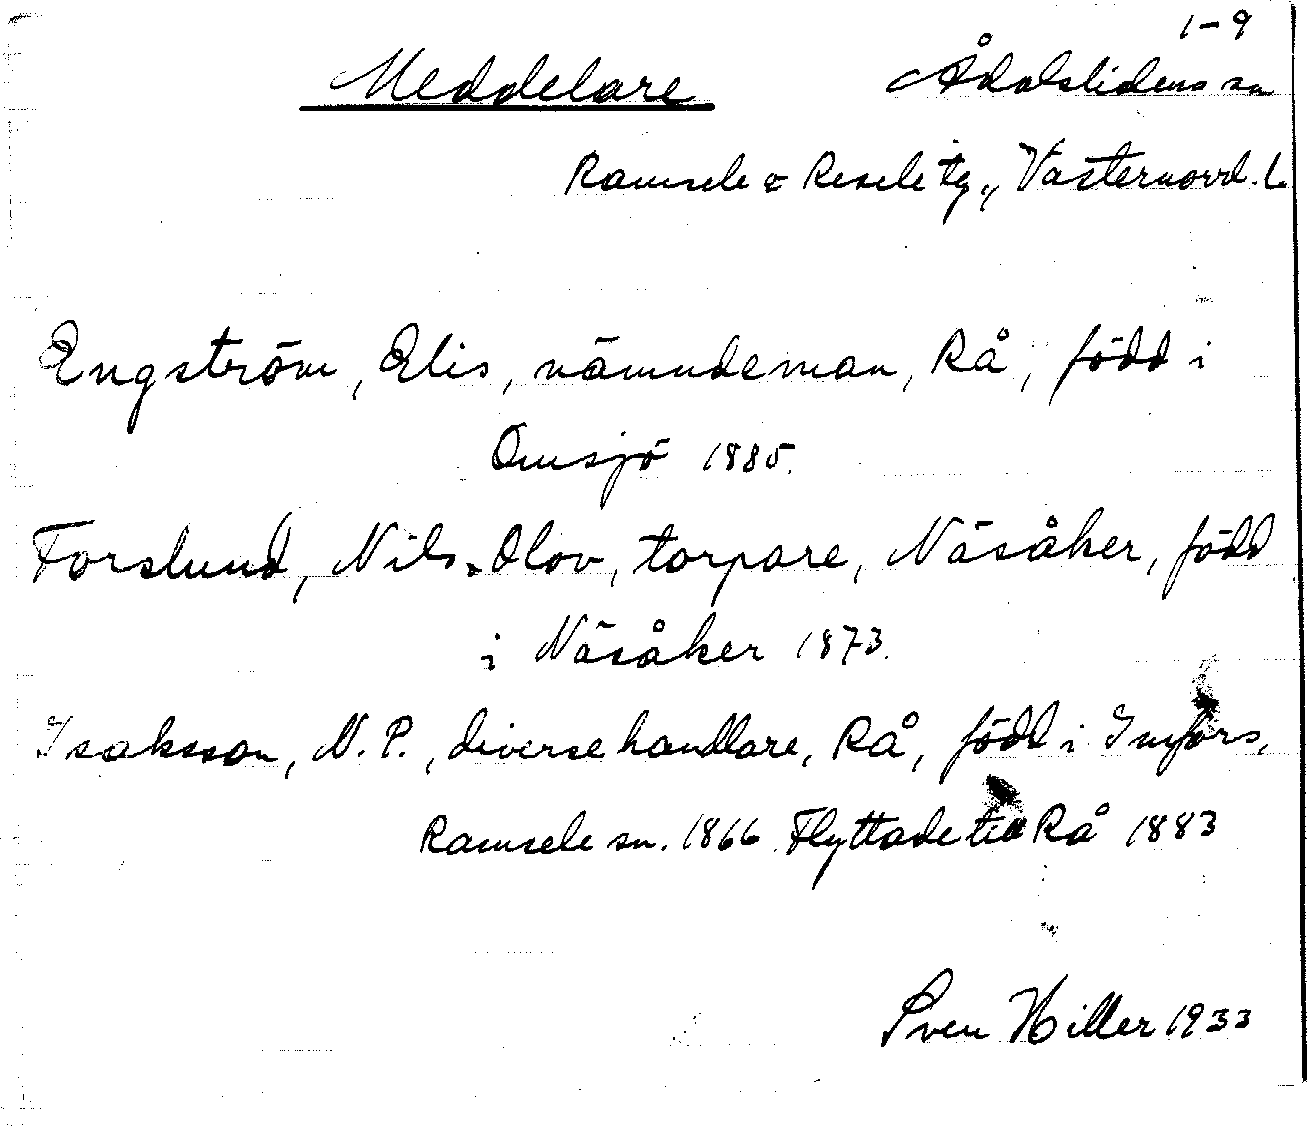 1-9
Meddelare Ådalslidens sn
Ramsele & Resele tg., Västernorrl. L.
Engström, Elis, nämndeman, Rå, född i
Omsjö 1885.
Forslund, Nils-Olov, torpare, Näsåker, född
i Näsåker 1873.
Isaksson, N.P., diversehandlare, Rå, född i Imfors,
Ramsele sn. 1866. Flyttade till Rå 1883
Sven Hiller 1933